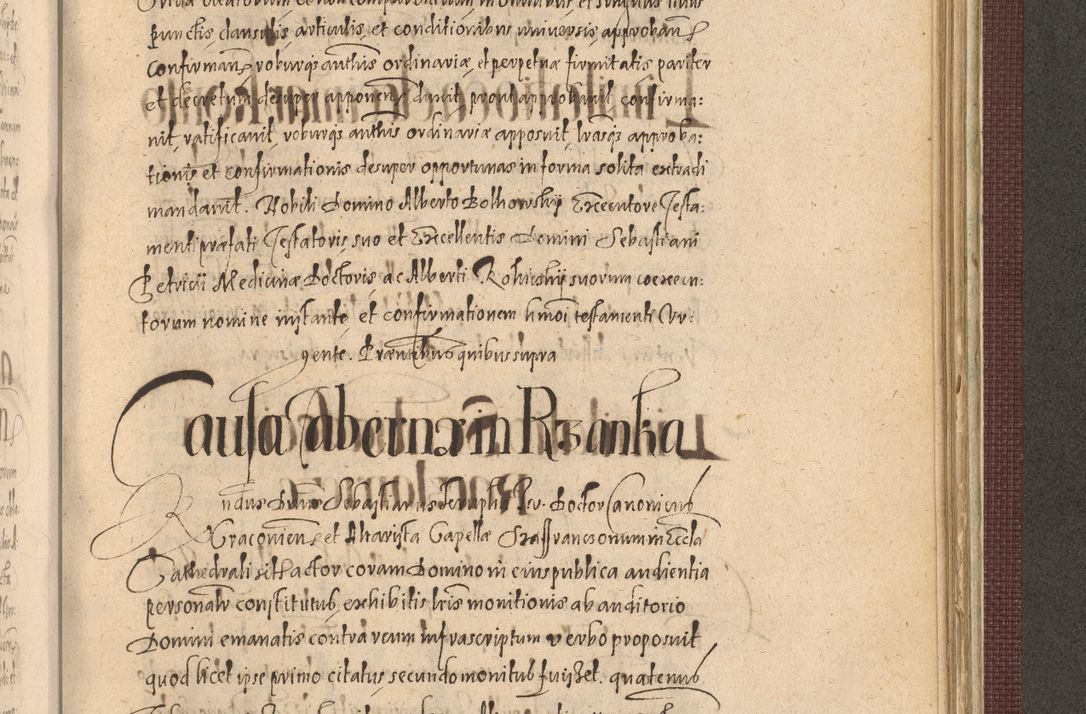 punctis, clausulis, articulis, et conditionibus universis, approban
confirman roburqs authis ordinariæ, et perpetuæ firmitatis pariter
et decretum desuper apponen duxit, prout approbavit confirma:
vit, ratificavit, roburqs authis ordinariæ apposuit, lrasqs approba:
tionis et confirmationis desuper opportunas in forma solita extradi
mandavit. Nobili Domino Alberto Bolhowskÿ Executore Testa:
menti præfati Testatoris, suo et Excellentis Domini Sebastiani
Petricii Medicinæ Doctoris, ac Alberti suorum coexecu:
torum nomine instante, et confirmationem hmoi testamenti Ur:
gente. Præntibus quibus supra
Causa Tabernæ in Rzanka
Rndus Dnus Sebastianus Doctor Canonicus
Cracovien et Altarista Capellæ in Eccla
Cathedrali sit Actor coram Domino in eius publica audientia
personalr constitutus, exhibitis lris monitionis ab auditorio
Domini emanatis contra reum infrascriptum verbo proposuit
quod licet ipse primo citatus, secundo monitus fuisset. quatenus